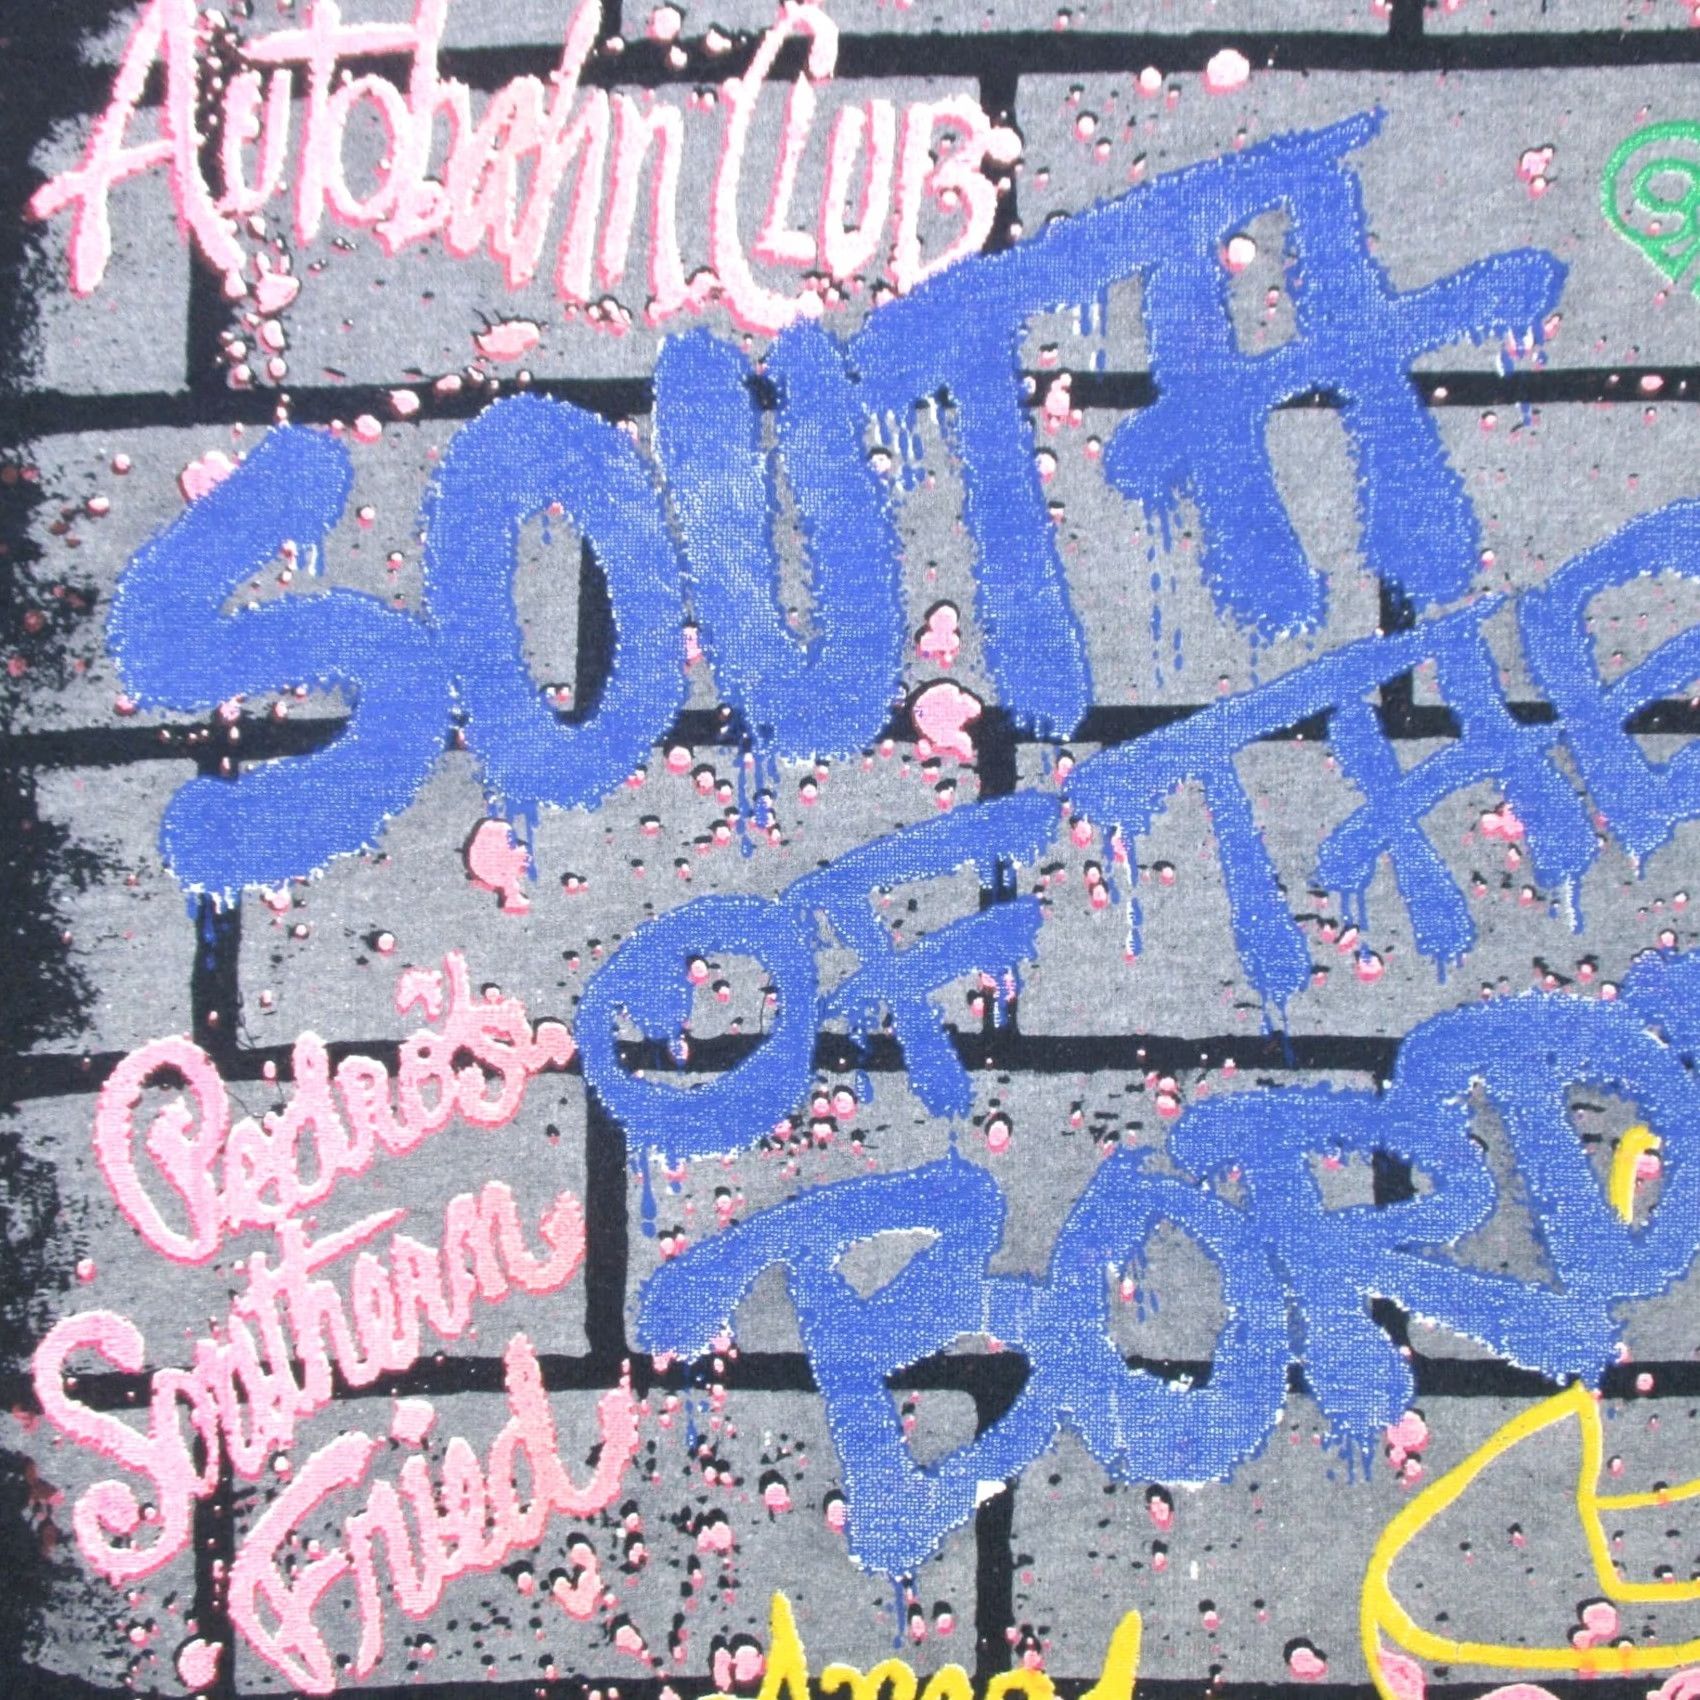 Autobahn Club
SOUTH
OF THE
BORD
Pedro's
Southern
Fried